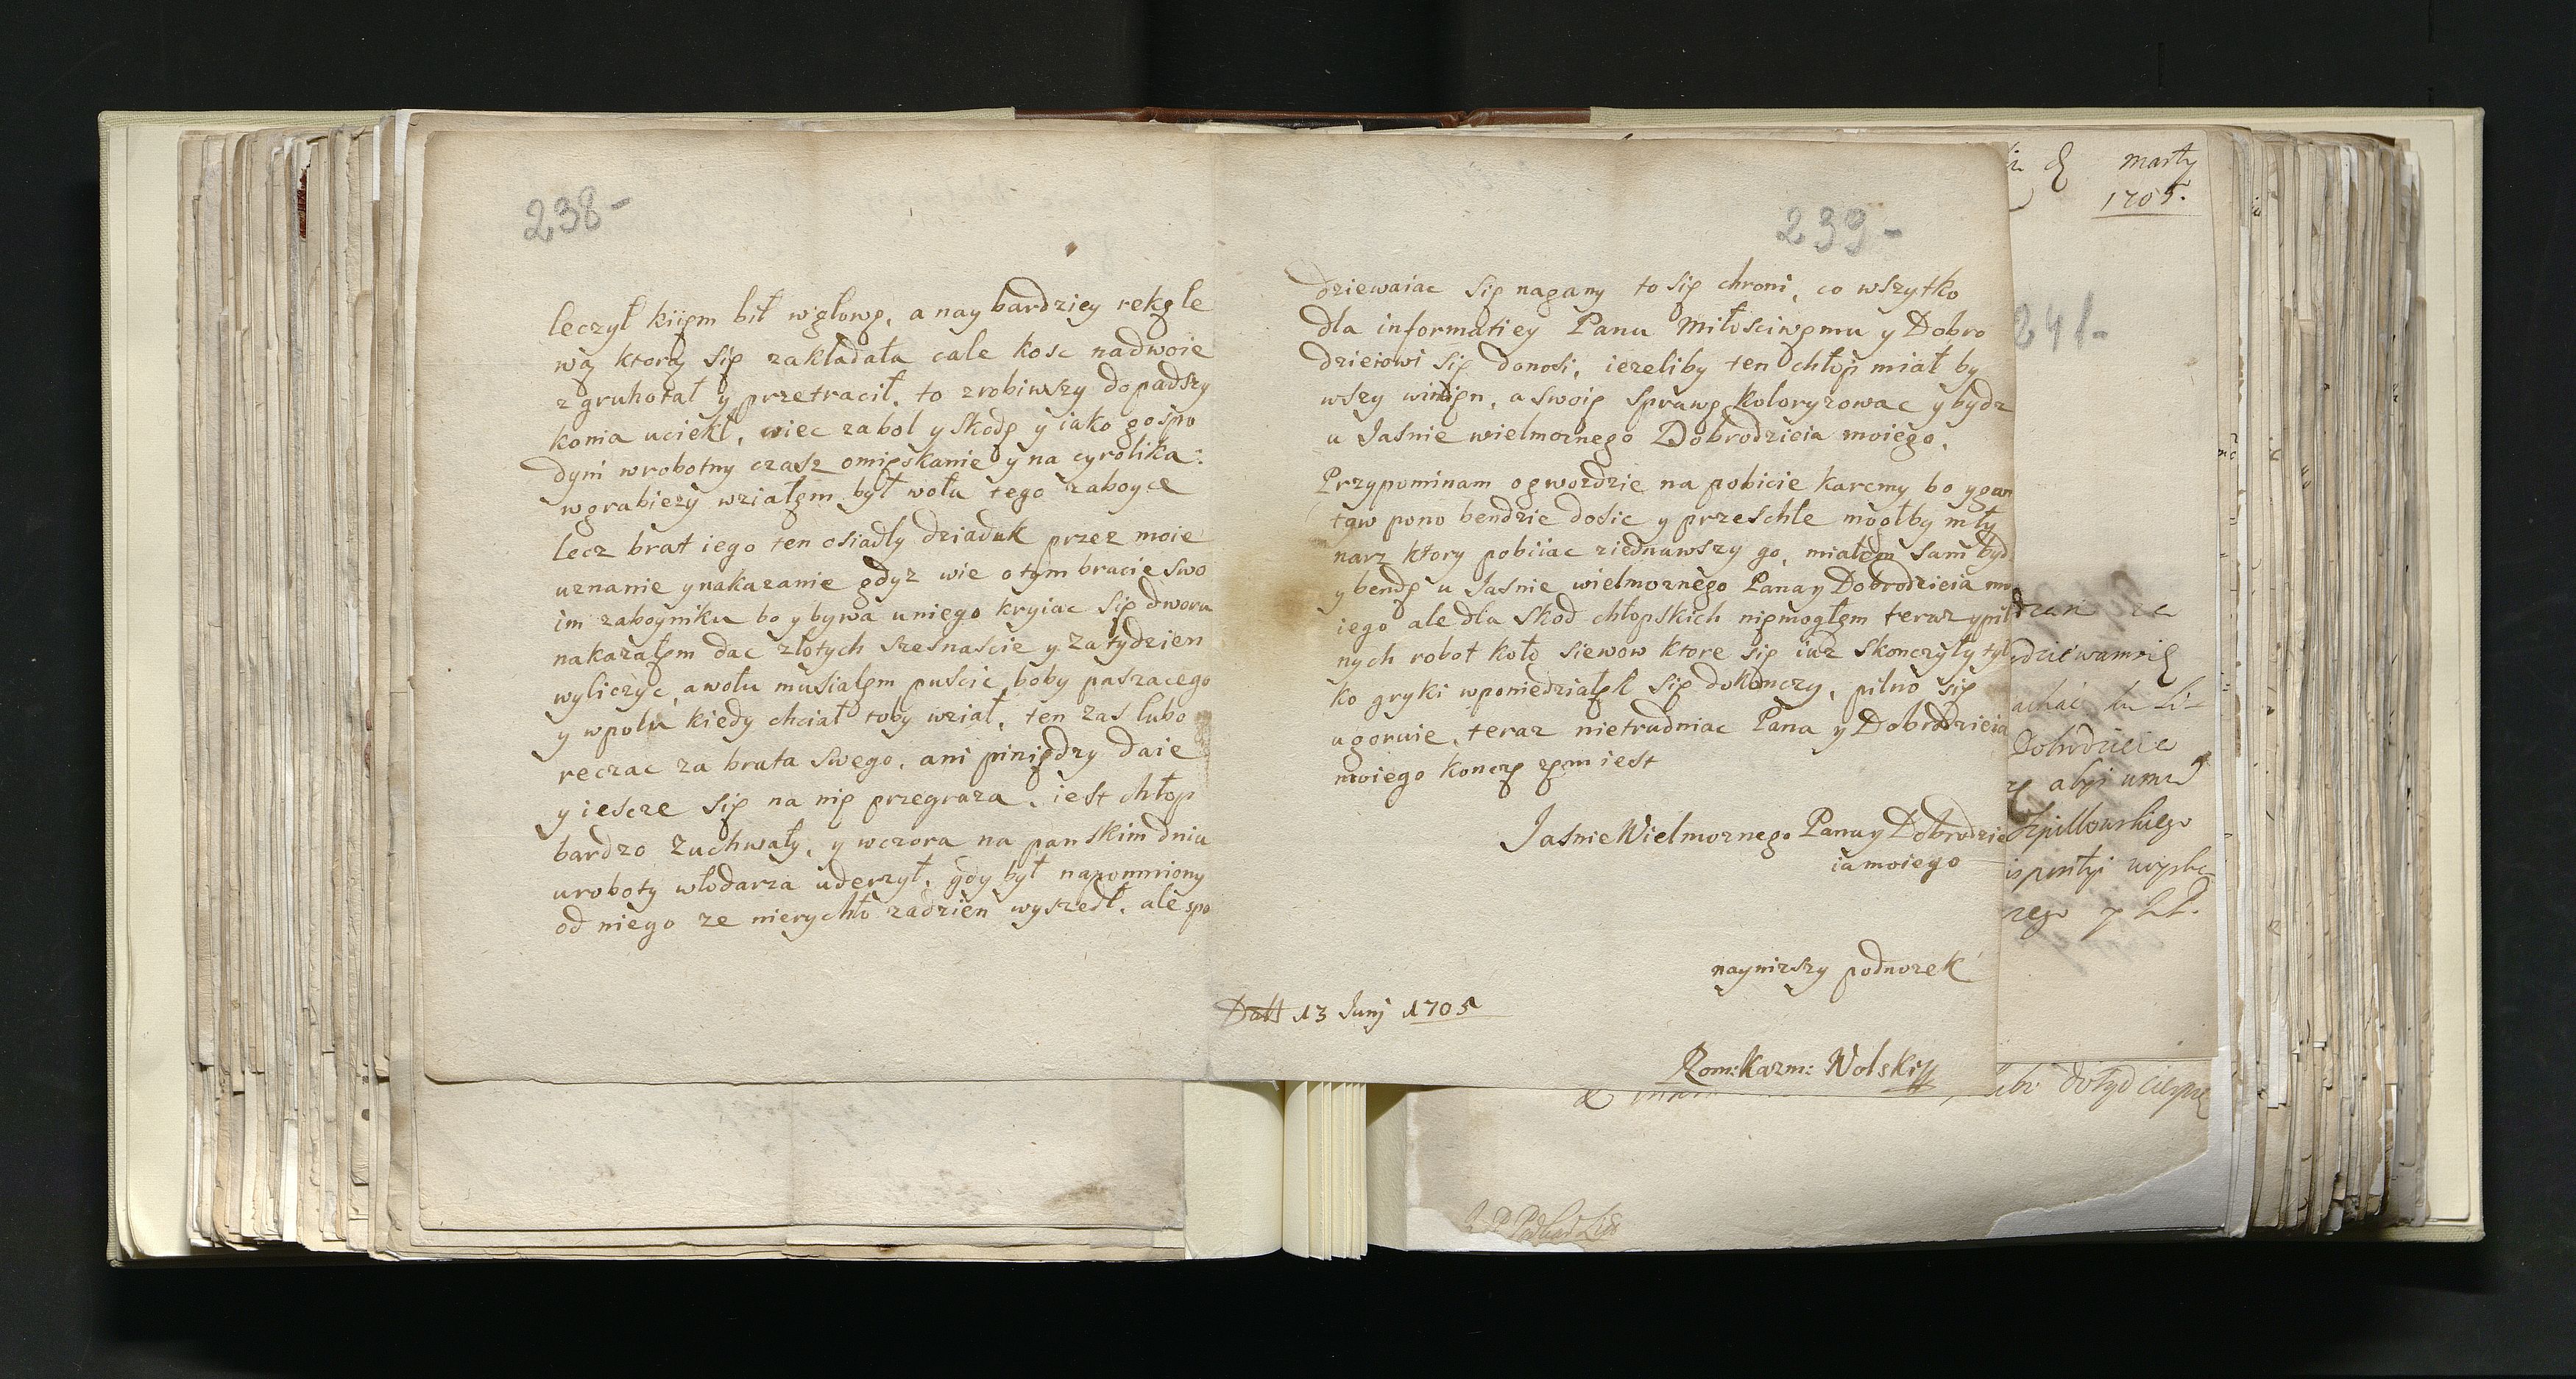 238-
leczył kiięm bił wgłowę, a naybardziey rekę le
wą ktorą się zakładała cale kosc nadwoie
zgruhotał y przetracił, to zrobiwszy dopadszy
konia uciekł, wiec zabol y skodę y iako gospo
dyni wrobotny czasz omięskanie y na cyrolika:
wgrabiezy wziałęm był wołu tego zaboyce
lecz brat iego ten osiadły dziaduk przez moie
uznanie ynakazanie gdyz wie otym bracie swo
im zaboyniku bo y bywa uniego kryiac się dworu
nakazałęm dac złotych szesnascie y zatydzien
wyliczyc, awołu musiałęm puscic boby paszacego
y wpolu kiedy chciał toby wział, ten zas lubo
reczac za brata swego, ani piniędzy daie
y iescze się na nię przegraza, iest chłop
bardzo zuchwały, y wczora na panskim dniu
uroboty włodarza uderzył, gdy był napomniony
od niego ze nierychło zadzien wyszedł, ale spo
239-
dziewaiac się nagany to się chroni, co wszytko
dla informatiey Panu Miłosciwęmu y Dobro
dzieiowi się donosi, iezeliby ten chłop miał by
wszy winięn, a swoię sprawę koloryzowac y bydz
u Jasnie wielmoznego Dobrodzieia moiego.
Przypominam ogwozdzie na pobicie karcmy bo ygan
taw pono bendzie dosic y przeschłe mogłby mły
narz ktory pobiiac ziednawszy go, miałęm sam byd
y bendę u Jasnie wielmoznego Pana y Dobrodzieia mo
iego ale dla skod chłopskich nięmogłęm teraz ypil
nych robot koło siewow ktore się iuz skonczyły tyl
ko gryki wponiedziałęk się dokonczy, pilno się
ugoruie, teraz nietrudniac Pana y Dobrodzieia
moiego koncze zęm iest
JasnieWielmoznego Pana y Dobrodzie
ia moiego
naynizszy podnozek
Datt 13 Junj 1705
Rom: Kazm: Wolski
marty
1705.
241-